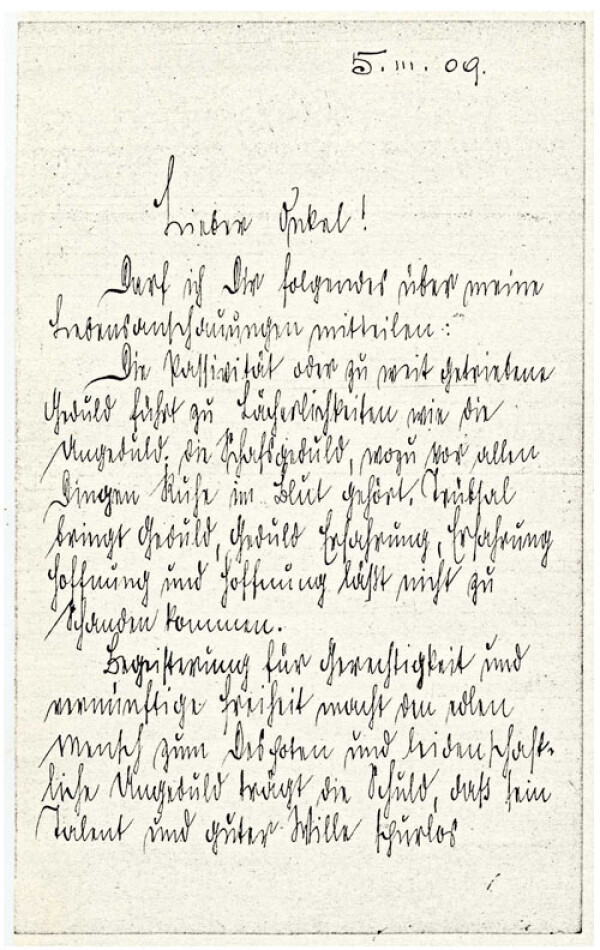 5. III. 09.
Lieber Onkel!
Darf ich Dir folgendes über meine
Lebensanschauungen mitteilen:
Die Passivität oder zu weit getriebene
Geduld führt zu Lächerlichkeiten wie die
Ungeduld; die Schafsgeduld, wozu vor allen
Dingen Ruhe im Blut gehört. Trübsal
bringt Geduld, Geduld Erfahrung, Erfahrung
Hoffnung und Hoffnung läßt nicht zu
Schanden kommen.
Begeisterung für Gerechtigkeit und
vernünftige Freiheit macht den edlen
Mensch zum Despoten und leidenschaft-
liche Ungeduld trägt die Schuld, daß sein
Talent und guter Wille spurlos